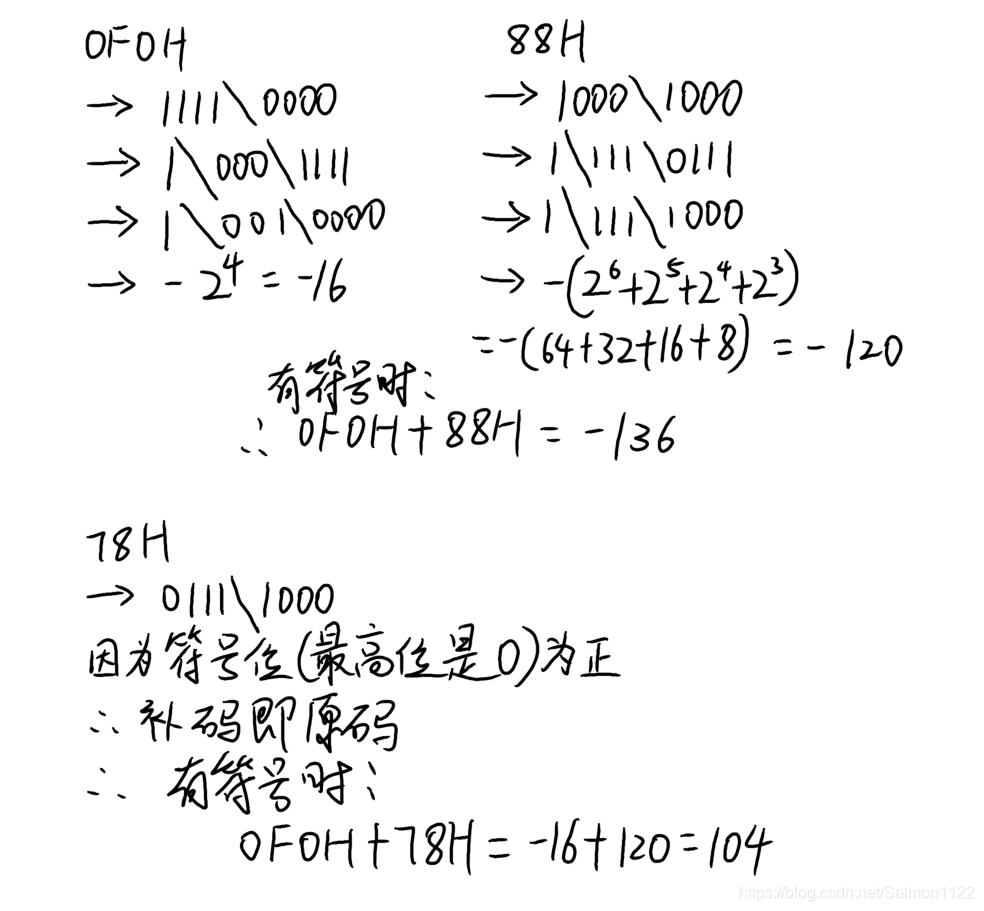 0F0H
→ 1111\0000
→ 1\000\1111
→ 1\001\0000
→ -2⁴ = -16
88H
→ 1000\1000
→ 1\111\0111
→ 1\111\1000
→ -(2⁶+2⁵+2⁴+2³)
=-(64+32+16+8) = -120
有符号时:
∴ 0F0H+88H = -136
78H
→ 0111\1000
因为符号位(最高位是0)为正
∴ 补码即原码
∴ 有符号时:
0F0H+78H = -16+120=104
https://blog.csdn.net/Salmon1122